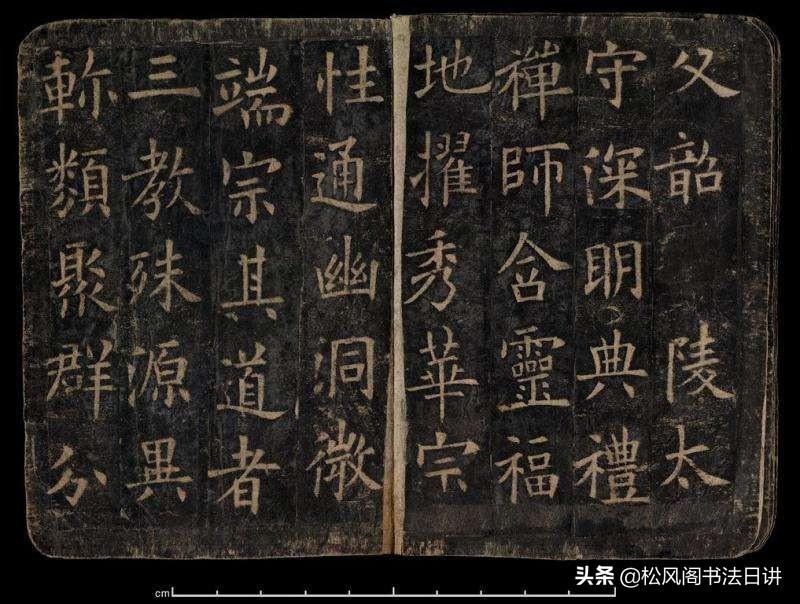 父韶陵太
守深明典禮
禪師含靈福
地擢秀華宗
性通幽洞微
端宗其道者
三教殊源異
軫類聚群分
cm
头条 @松风阁书法日讲